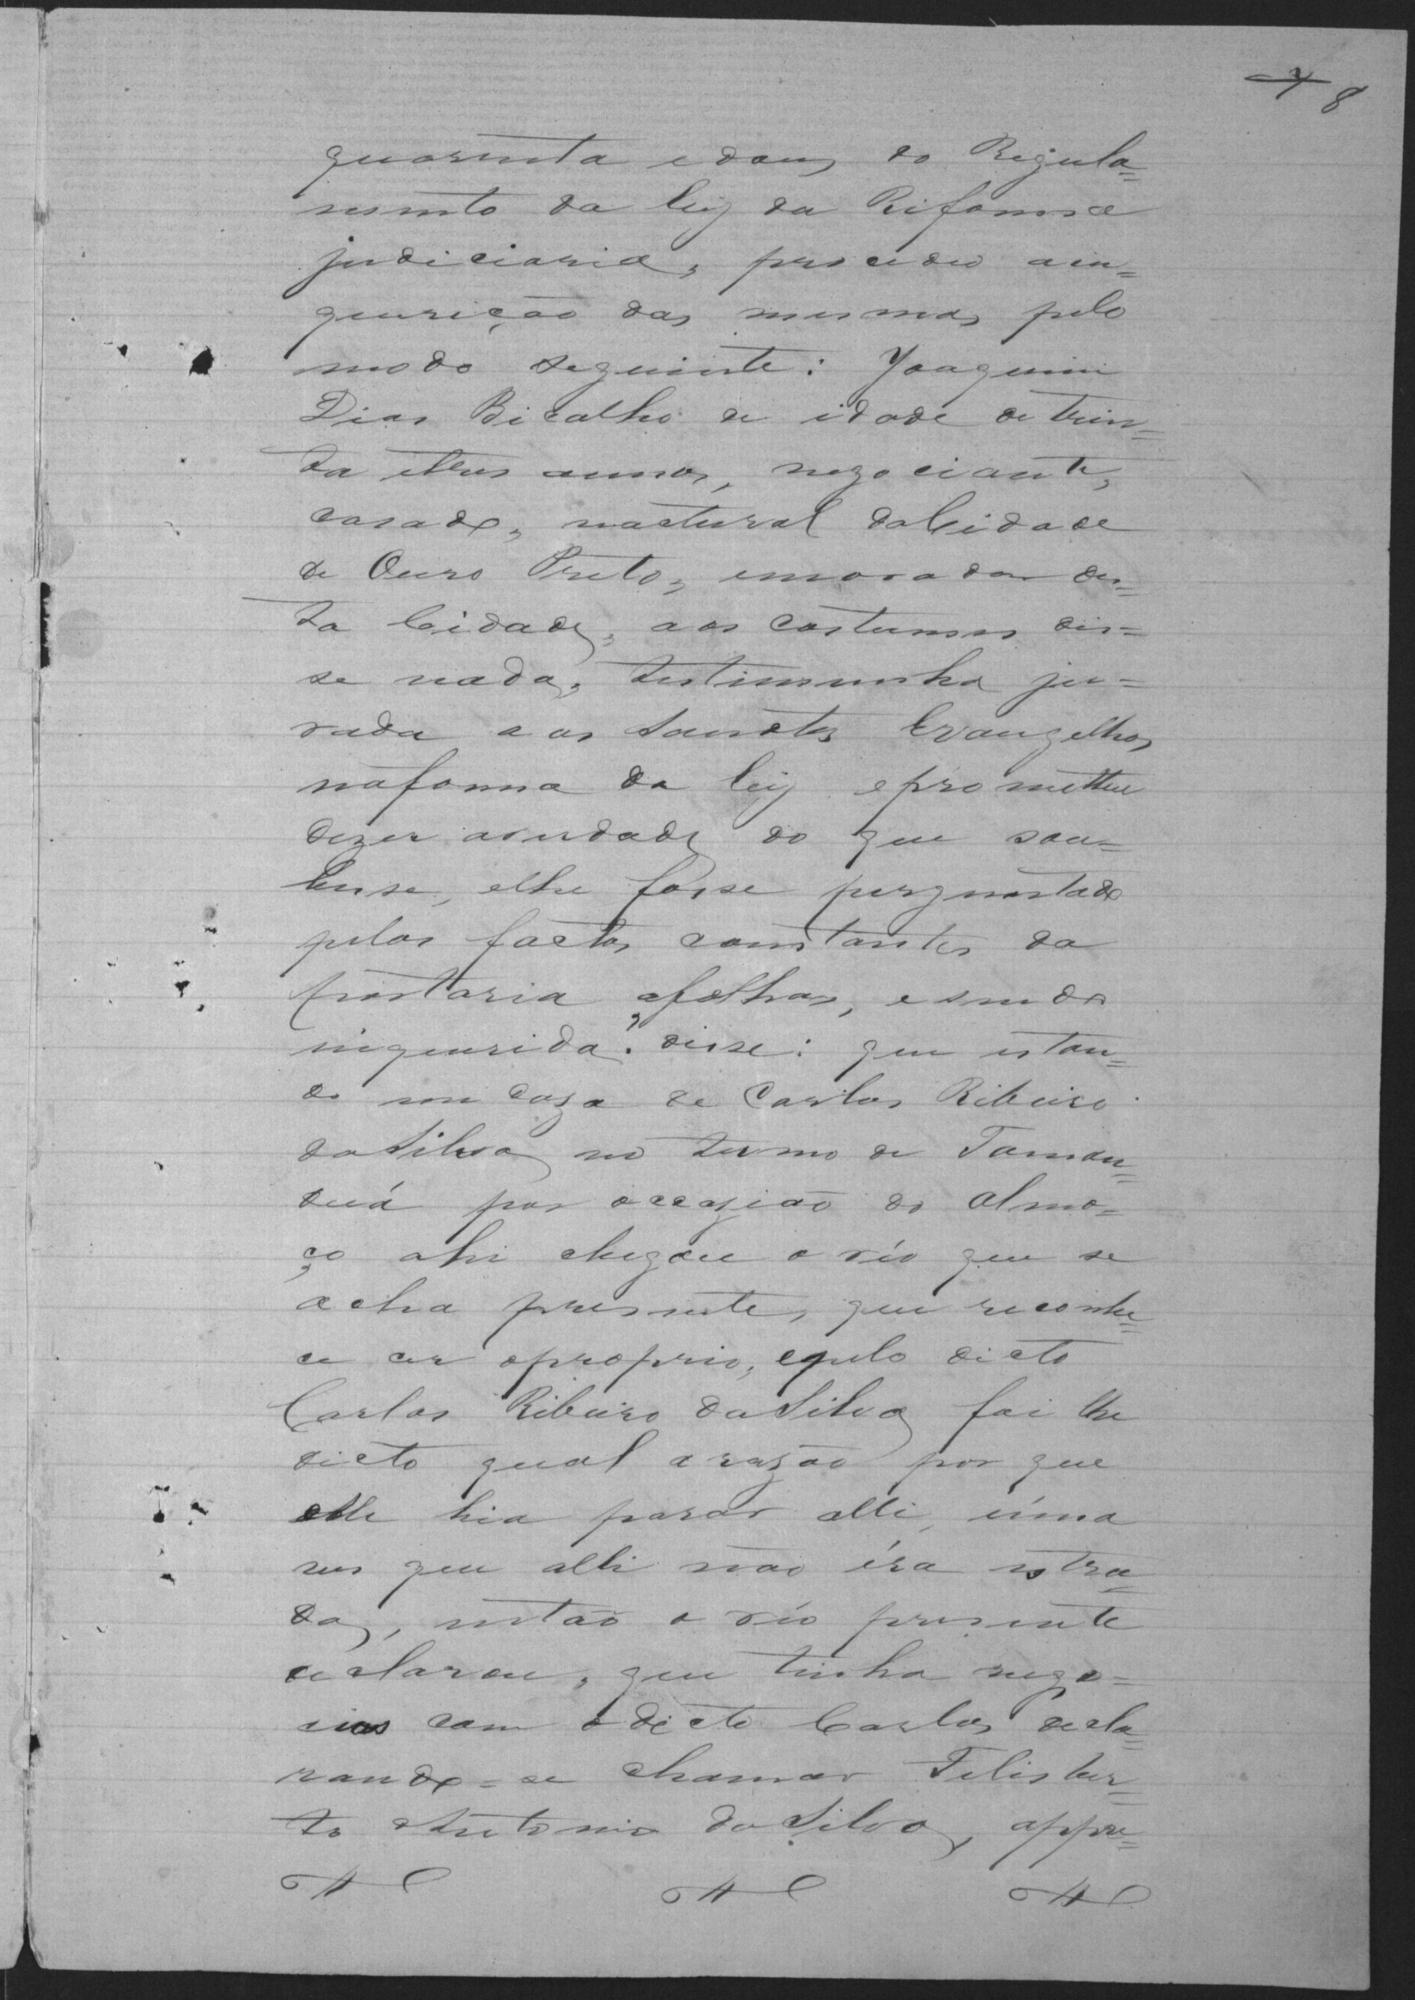 7 8
quarenta e dous, do Regula=
mento da lei da Riforma
judiciaria, procedeu a in=
queurição das mesmas, pelo
modo seguinte: Joaquim
Dias Bicalho de idade de trin=
ta e tres annos, negociante,
casado, nactural da Cidade
de Ouro Preto, e morador des=
ta Cidade, aos costumes dis=
se nada, testimunha ju=
rada aos Sanctos Evangelhos,
na forma da lei e prometteu
dizer a verdade do que sou=
besse, e lhe fosse perguntado
pelos factos constantes da
portaria a folhas, e sendo
inqueurida, disse: que estan=
do em caza de Carlos Ribeiro
da Silva no termo de Taman=
duá por occazião do almo=
ço ahi chegou o réo que se
acha presente, que reconhe=
ce ser o proprio, e pelo dicto
Carlos Ribeiro da Silva foi lhe
dicto qual a razão por que
elle hia parar alli, uma
ves que alli não éra estra=
da, então o réo presente
declarou, que tinha nego=
cios com o dicto Carlos decla=
rando=se chamar Felisber=
to Antonio da Silva, appre=